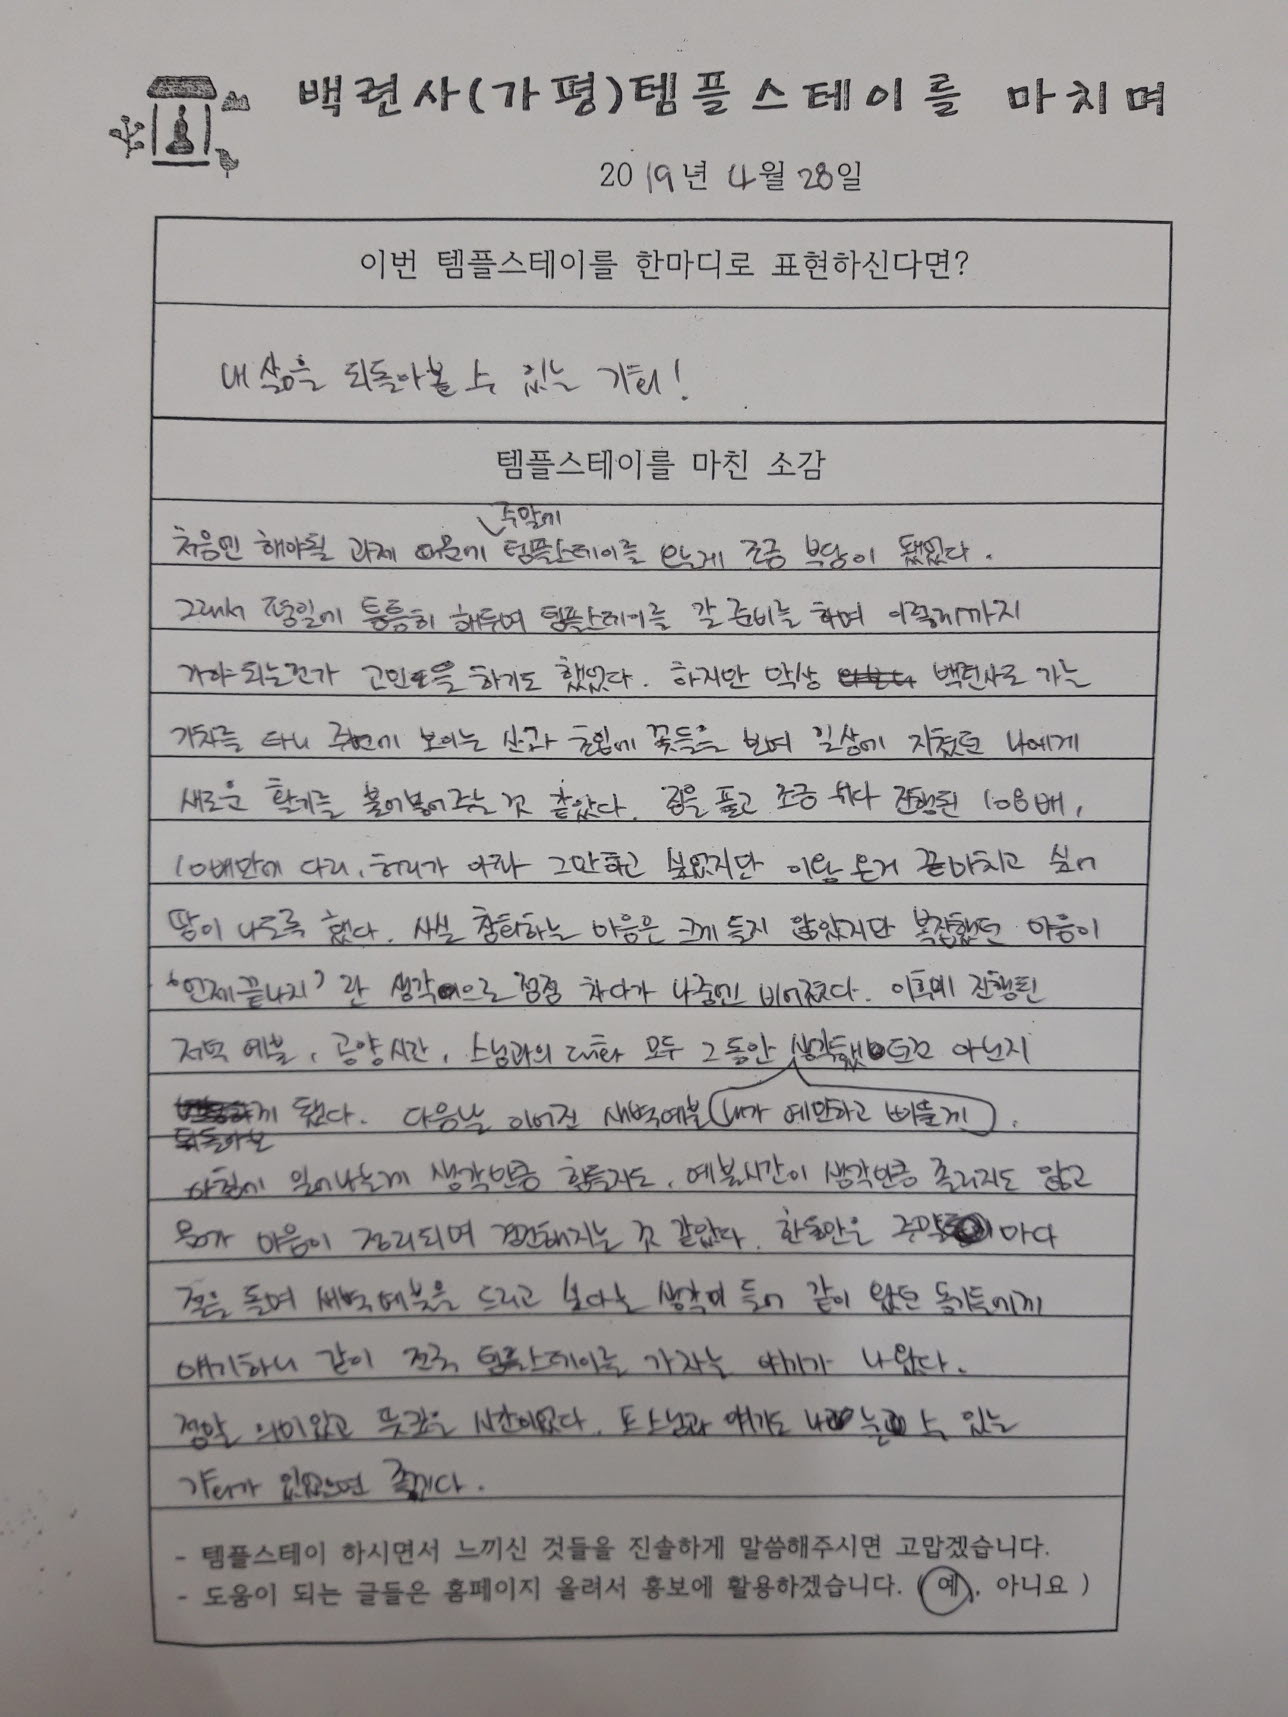 백련사(가평)템플스테이를 마치며
2019년 4월 28일
이번 템플스테이를 한마디로 표현하신다면?
내 삶을 되돌아볼 수 있는 기회!
템플스테이를 마친 소감
주말에
처음엔 해야될 과제 때문에 템플스테이를 오는게 조금 부담이 됐었다.
그래서 평일에 틈틈히 해두며 템플스테이를 갈 준비를 하며 이렇게까지
가야 되는건가 고민을 하기도 했었다. 하지만 막상 백련사로 가는
기차를 타니 주변에 보이는 산과 초입에 꽃들을 보며 일상에 지쳤던 나에게
새로운 활기를 불어넣어주는 것 같았다. 짐을 풀고 조금 쉬다 진행된 108배,
10배만에 다리, 허리가 아파 그만하고 싶었지만 이왕 온거 끝마치고 싶어
땀이 나도록 했다. 사실 참회하는 마음은 크게 들지 않았지만 복잡했던 마음이
'언제끝나지' 란 생각으로 점점 차다가 나중엔 비어졌다. 이후에 진행된
저녁 예불, 공양시간, 스님과의 대화 모두 그동안 생각했던 아닌지
게 됐다. 다음날 이어진 새벽예불 내가 예민하고 삐뚤게 .
되돌아보
아침에 일어나는게 생각만큼 힘들지도, 예불시간이 생각만큼 졸리지도 않고
뭔가 마음이 정리되며 경건해지는 것 같았다. 한동안은 주말마다
절을 돌며 새벽예불을 드리고 싶다는 생각이 들어 같이 왔던 동기들에게
얘기하니 같이 전국 템플스테이를 가자는 얘기가 나왔다.
정말 의미있고 뜻깊은 시간이었다. 또 스님과 얘기도 나눌 수 있는
기회가 있었으면 좋겠다.
- 템플스테이 하시면서 느끼신 것들을 진솔하게 말씀해주시면 고맙겠습니다.
- 도움이 되는 글들은 홈페이지 올려서 홍보에 활용하겠습니다. ( 예, 아니요 )